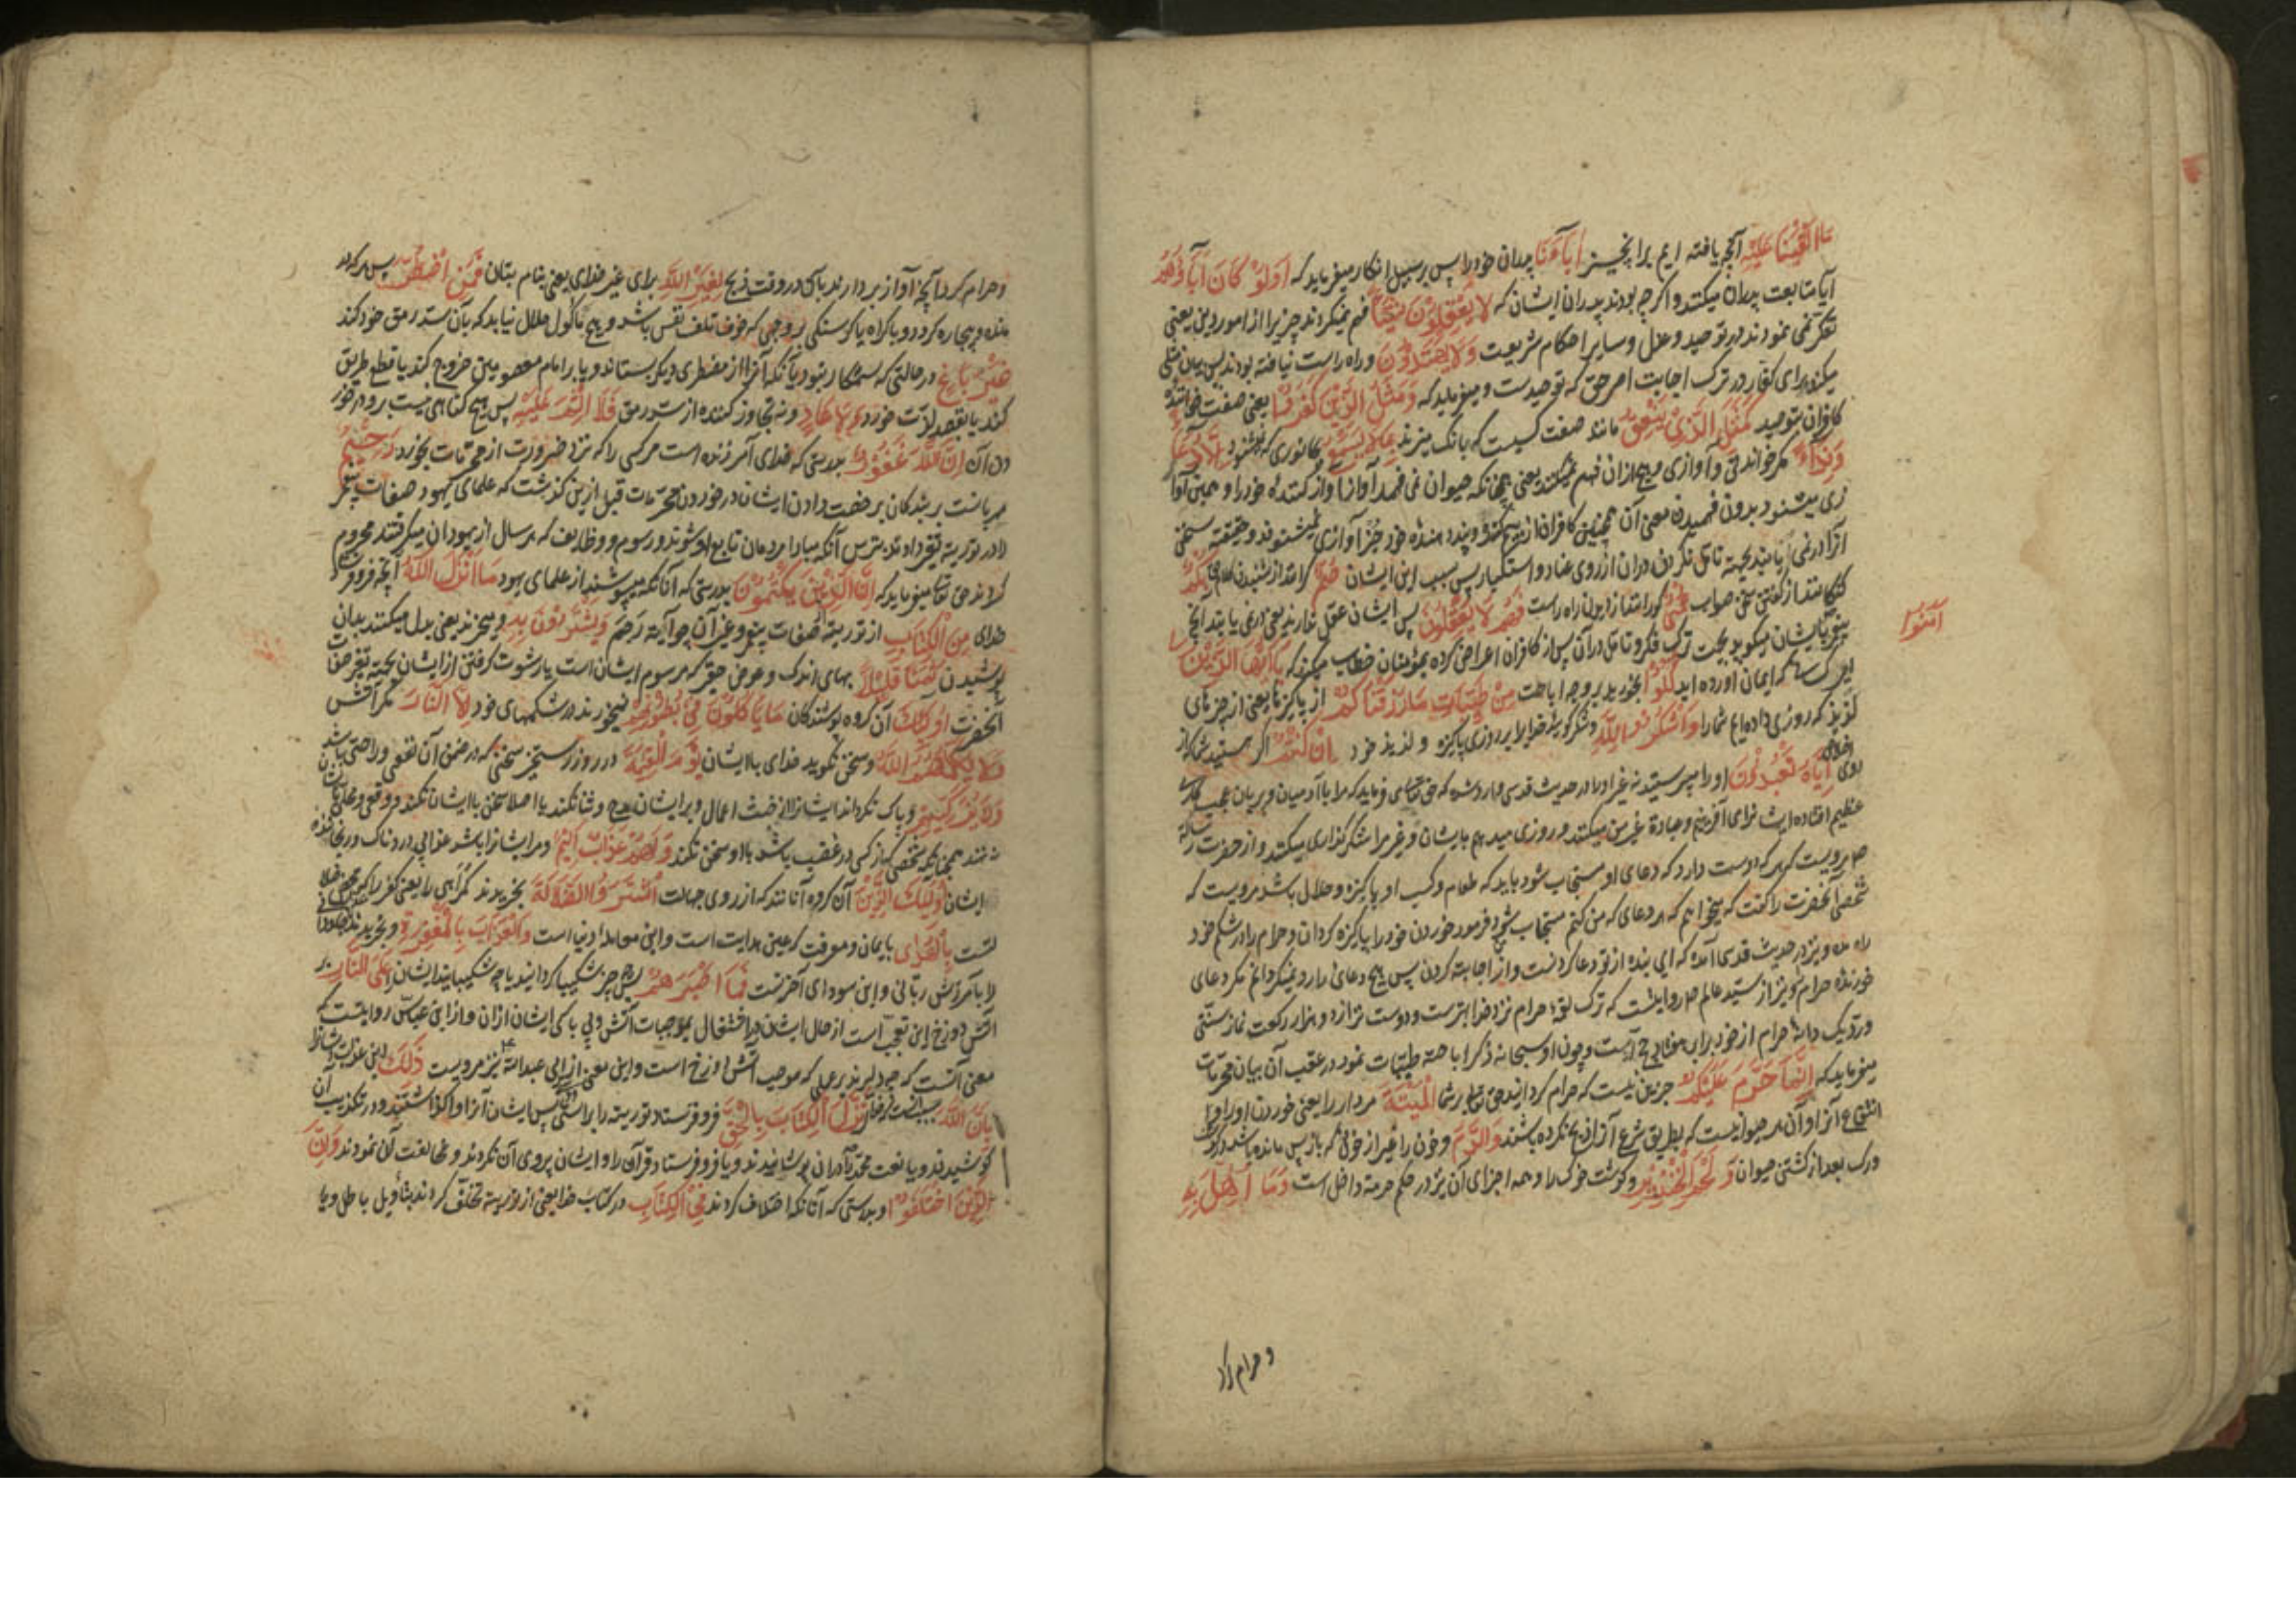 ما الفینا علیه آنچه یافته ایم برانچیز اباءنا پدران خود را پس بر سبیل انکار میفرماید که اولو کان اباؤهم
آیا متابعت پدران میکنند و اگر چه بودند پدران ایشان که لا یعقلون شیئا فهم نمیکردند چیزیرا از امور دین یعنی
تفکر نمی نمودند در توحید و عدل و سایر احکام شریعت ولا یهتدون و راه راست نیافته بودند پس بیان مثلی
میکند برای کفار در ترک اجابت امر حق که توحیدست و میفرماید که ومثل الذین کفروا یعنی صفت
کافران بتوحید کمثل الذی ینعق مانند صفت کسیست که بانک میزند بما لا یسمع بجانوری که نشنود الا دعاء
ونداء مکر خواندنی و آوازی و هیچ از ان فهم نمیکند یعنی همچنانکه حیوان نمی فهمد آواز خود را و همین آوا
زی میشنود بدون فهمیدن معنی آن همچنین کافران از پند دهنده خود جز آوازی نمیشنوند و حقیقة سخن
آنرا در نمی یابند بجهة تامل نکردن در ان از روی عناد و استکبار پس بسبب این ایشان صم کرانند از شنیدن کلام حق بکم
کنکانند از کفتن سخن صواب عمی کورانند از دیدن راه راست فهم لا یعقلون پس ایشان عقل ندارند یعنی در نمی یابند آنچه
پیغمبر بایشان میکوید بجهت ترک فکر و تامل در آن پس از کافران اعراض کرده بمؤمنان خطاب میکند که یا ایها الذین
امنوا
ای کسانی که ایمان اورده اید کلوا بخورید بر وجه اباحت من طیبات ما رزقناکم از پاکیزها یعنی از چیزهای
لذیذ که روزی داده ایم شما را واشکروا لله و شکر کویید خدایرا بر روزی پاکیزه و لذیذ خود ان کنتم اکر هستید شما که از
روی اخلاص ایاه تعبدون او را میپرستید نه غیر او را در حدیث قدسی وارد شده که حق تعالی میفرماید که مرا با آدمیان و پریان عجب کاری
عظیم افتاده ایشانرا می آفرینم و عبادة غیر من میکنند و روزی میدهم بایشان و غیر مرا شکر کذاری میکنند و از حضرت رسالة
مرویست که هر که دوست دارد که دعای او مستجاب شود باید که طعام و کسب او پاکیزه و حلال باشد مرویست که
شخصی آنحضرت را کفت که میخواهم که هر دعای که من کنم مستجاب شود فرمود خوردن خود را پاکیزه کردان و حرام را در شکم خود
راه مده و نیز در حدیث قدسی آمده که ای بنده از تو دعا کردنست و از من اجابة کردن پس هیچ دعای را رد نمیکردانم مکر دعای
خورنده حرام و نیز از سید عالم ص روایتست که ترک لقمه حرام نزد خدا بهترست و دوست تر از دو هزار رکعت نماز سنتی
ورد یک دانه حرام از خود برابر هفتاد حج است و چون او سبحانه ذکر اباحة طیبات نمود در عقب آن بیان محرمات
میفرماید که انما حرم علیکم جز این نیست که حرام کردانید حق تعالی بر شما المیتة مردار را یعنی خوردن او را و
انتفاع آنرا و آن هر حیوانیست که بطریق شرع آنرا ذبح نکرده باشند والدم و خون را غیر از خونی که باز پس مانده باشد در
ورک بعد از کشتن حیوان ولحم الخنزیر و کوشت خوک را و همه اجزای آن نیز در حکم حرمة داخل است وما اهل به
و حرام کرد
و حرام کرد آنچه آواز بردارند بآن در وقت ذبح لغیر الله برای غیر خدای یعنی بنام بتان فمن اضطر پس هر که در
مانده و بیچاره کردد و باکراه یا کرسنکی بر وجهی که خوف تلف نفس باشد و هیچ ماکول حلال نیابد که بآن سد رمق خود کند
غیر باغ در حالتی که ستمکار نبود یا آنکه آنرا از مضطری دیکر بستاند و یا بر امام معصوم خروج کند یا قطع طریق
کند یا بقصد لذت خورد ولا عاد و نه تجاوز کننده از سد رمق فلا اثم علیه پس هیچ کناهی نیست برو در خور
دن آن ان الله غفور بدرستی که خدای آمرزنده است مر کسی را که نزد ضرورت از محرمات بخورد رحیم
مهربانست بر بندکان برخصت دادن ایشان در خوردن محرمات قبل ازین کذشت که علمای یهود صفات پیغمبر
را در توریة تغیر دادند بترس آنکه مبادا مردمان تابع او شوند و رسوم و وظایف که هر سال از یهودان میکرفتند محروم
کردند حق تعالی میفرماید که ان الذین یکتمون بدرستی که آنانکه میپوشند از علمای یهود ما انزل الله آنچه فرو فرستاد
خدای من الکتاب از توریة صفات پیغمبر و غیر آن چو آیة رجم ویشترون به و میخرند یعنی بدل میکنند بدان
پوشیدن ثمنا قلیلا بهای اندک و عوض حقیر که مرسوم ایشان است یا رشوت کرفتن از ایشان بجهة تغیر صفات
آنحضرت اولئک آن کروه پوشندکان ما یاکلون فی بطونهم نمیخورند در شکمهای خود الا النار مکر آتش
ولا یکلمهم الله و سخن نکوید خدای با ایشان یوم القیمة در روز رستخیز سخنی که در ضمن آن نفعی و راحتی باشد
ولا یزکیهم و پاک نکرداند ایشانرا از خبث اعمال و بر ایشان مدح و ثنا نکند یا اصلا سخن با ایشان نکند
همچنانکه شخصی که از کسی در غضب باشد با او سخن نکند ولهم عذاب الیم و مر ایشانرا باشد عذابی دردناک و رنجاننده
ایشان اولئک الذین آن کروه آنانند که از روی جهالت اشتروا الضلالة بخریدند کمراهی را یعنی کفر را که
است بالهدی بایمان و معرفت که عین هدایت است و این معامله دنیا است والعذاب بالمغفرة و بخریدند عذاب
را بآمرزش ربانی و این سودای آخرتست فما اصبرهم پس چه چیز شکیبا کردانید یا چه شکیبایند ایشان علی النار بر
آتش دوزخ این تعجب است از حال ایشان در اشتغال بموجبات آتش و بی باکی ایشان از ان و از ابن عباس روایتست که
معنی آنست که چه دلیرند بر عملی که موجب آتش دوزخ است و این معنی از ابی عبدالله ع نیز مرویست ذلک این عذاب
بان الله نزل الکتاب بالحق فرو فرستاد توریة را براستی پس ایشان آنرا و در تکذیب آن
کوشیدند و یا نعت محمد را در ان پوشانیدند و یا فرو فرستاد قرآن را و ایشان پیروی آن نکردند و مخالفت آن نمودند وان
الذین اختلفوا و بدرستی که آنانکه اختلاف کردند فی الکتاب در کتاب خدا یعنی از توریة تخلف کردند بتأویل باطل و یا